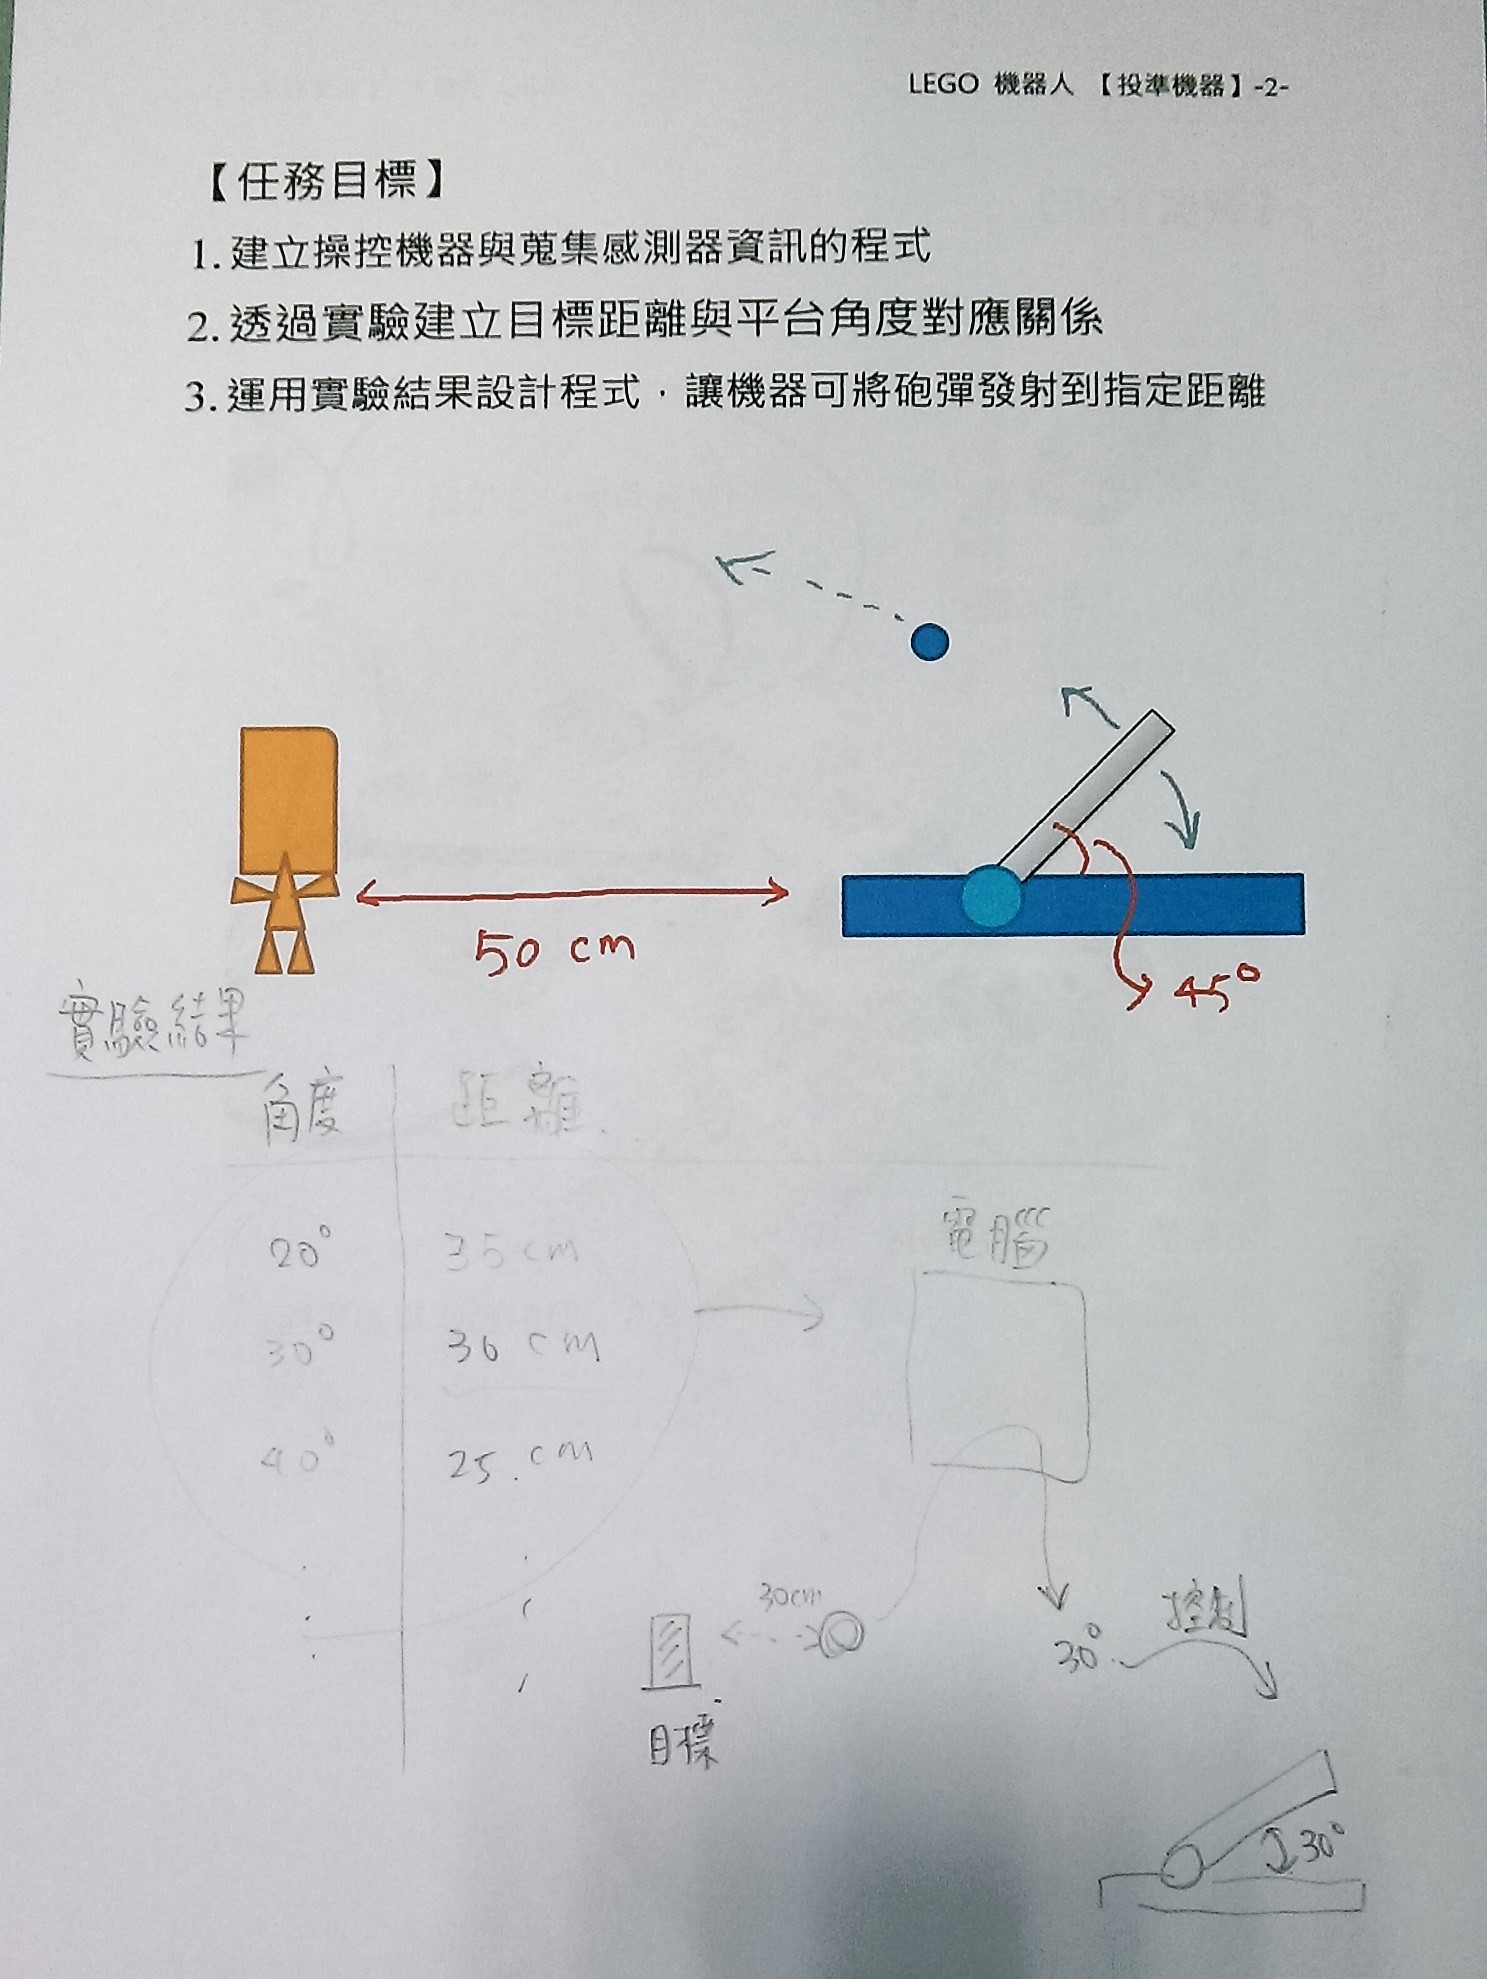 LEGO 機器人 【投準機器】-2-
【任務目標】
1. 建立操控機器與蒐集感測器資訊的程式
2. 透過實驗建立目標距離與平台角度對應關係
3. 運用實驗結果設計程式，讓機器可將砲彈發射到指定距離
50 cm
45°
實驗結果
角度 距離
20° 35 cm
30° 30 cm
40° 25 cm
電腦
30cm
目標
30°
控制
30°